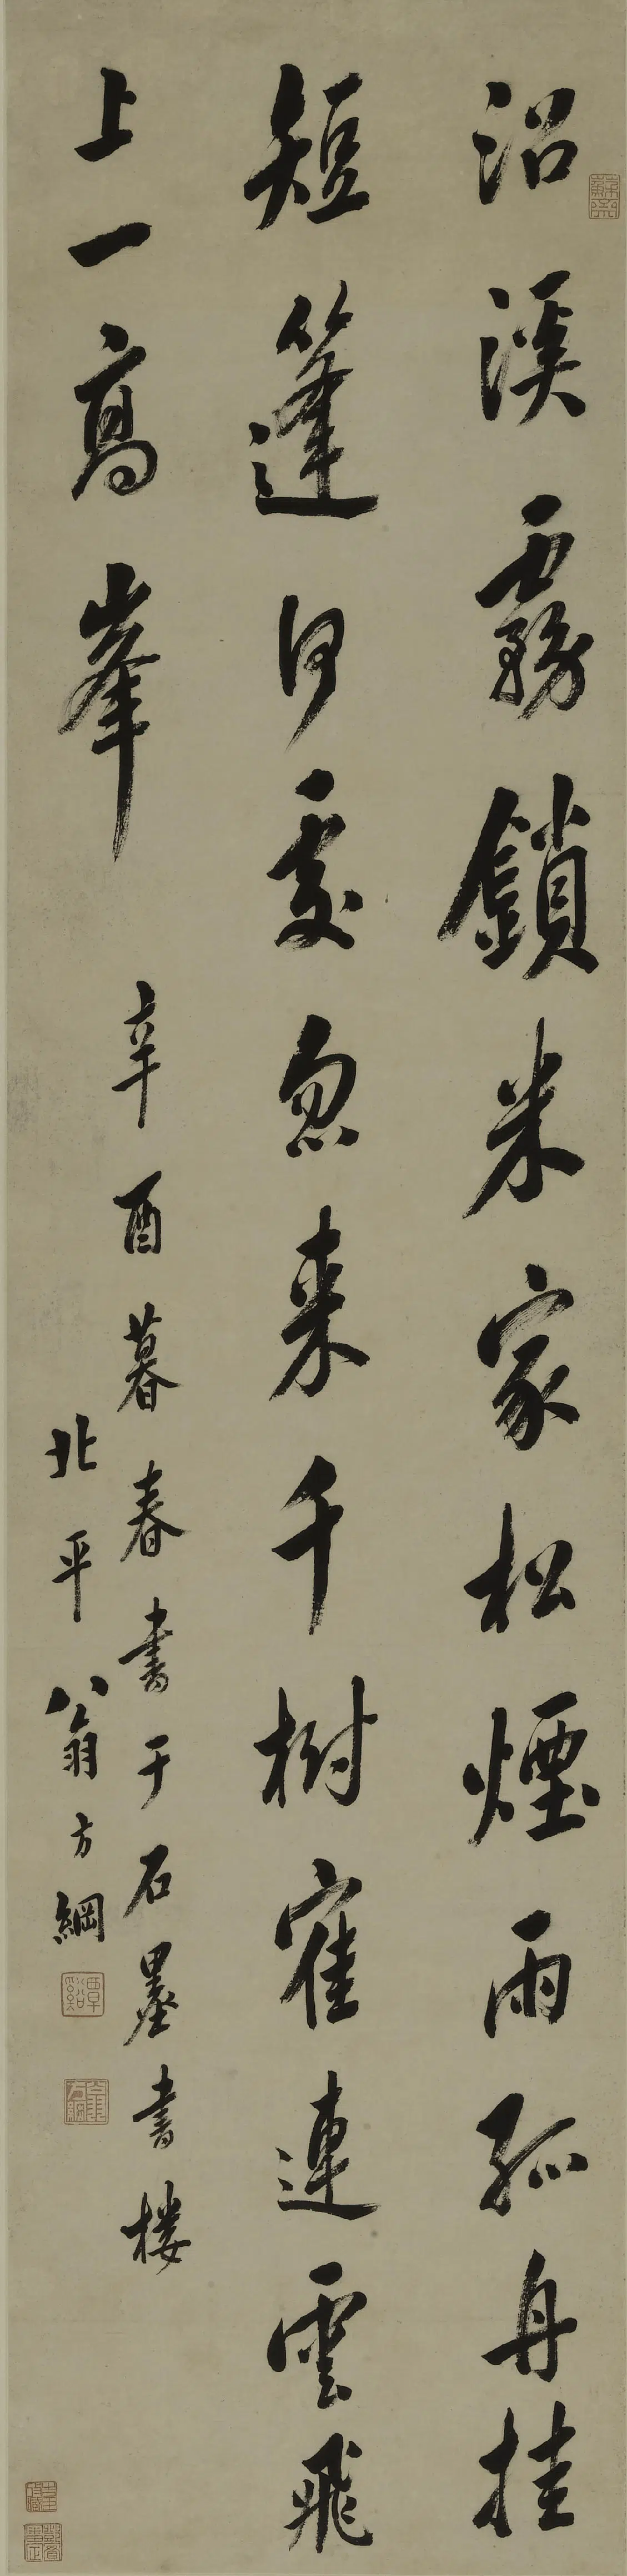 沿溪霧鎖米家松煙雨孤舟挂
短篷何處忽来千樹雀連雲飛
上一高峯
辛酉暮春書于石墨書楼
北平翁方綱
覃谿